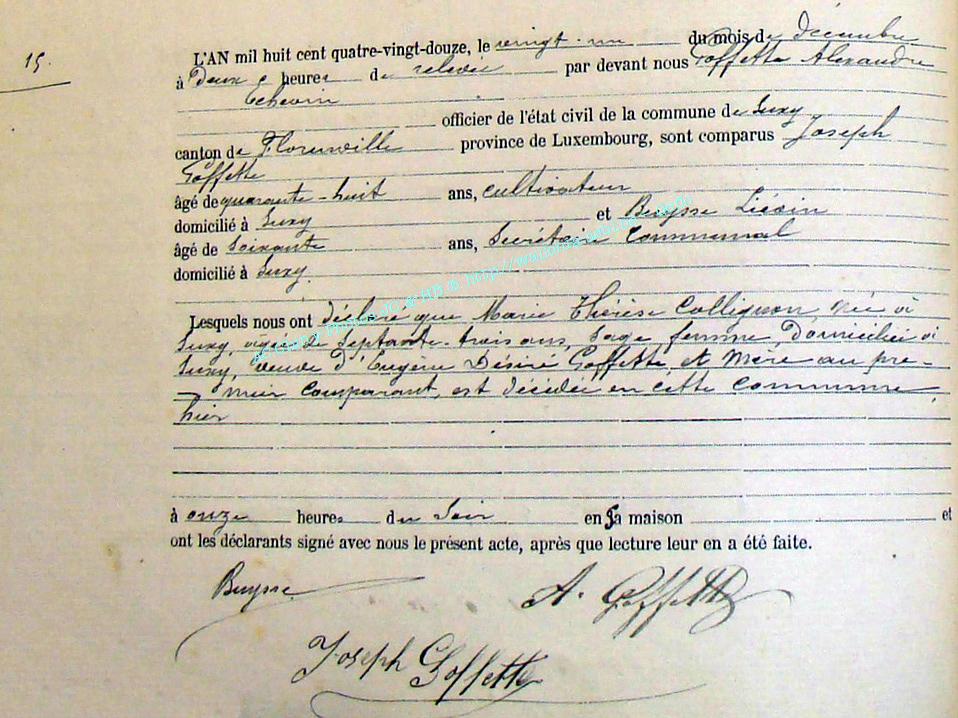 15.
L'AN mil huit cent quatre-vingt-douze, le vingt-un du mois de décembre
à Deux heures de relevée par devant nous Goffette Alexandre
Echevin
officier de l'état civil de la commune de Suxy
canton de Florenville province de Luxembourg, sont comparus Joseph
Goffette
âgé de quarante-huit ans, cultivateur
domicilié à Suxy et Buysse Liévin
âgé de Soixante ans, Secrétaire Communal
domicilié à Suxy
Lesquels nous ont déclaré que Marie Thérèse Collignon, née à
Suxy, âgée de Septante-trois ans, Sage femme, Domiciliée à
Suxy, veuve d'Eugène Désiré Goffette, et Mère au pre-
mier Comparant, est décédée en cette Commune,
hier
à onze heures du Soir en sa maison et
ont les déclarants signé avec nous le présent acte, après que lecture leur en a été faite.
Buysse A. Goffette
Joseph Goffette